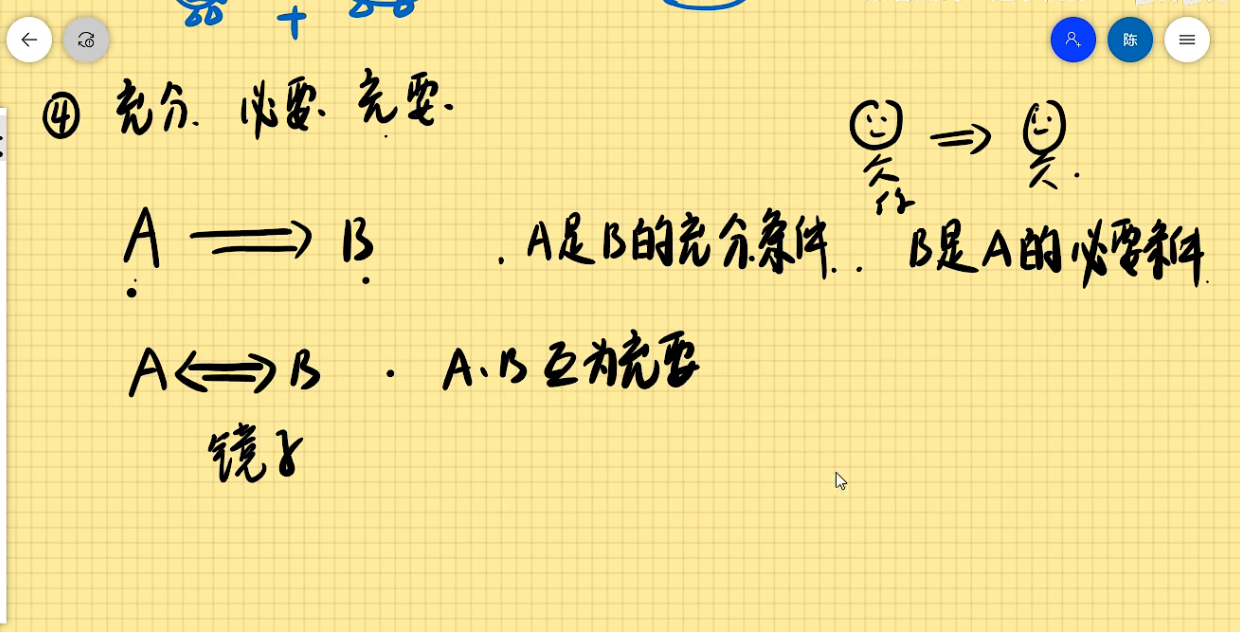 陈
④ 充分. 必要. 充要.
A ⟹ B . A是B的充分条件. . B是A的必要条件.
A ⟺ B . A、B 互为充要
镜子